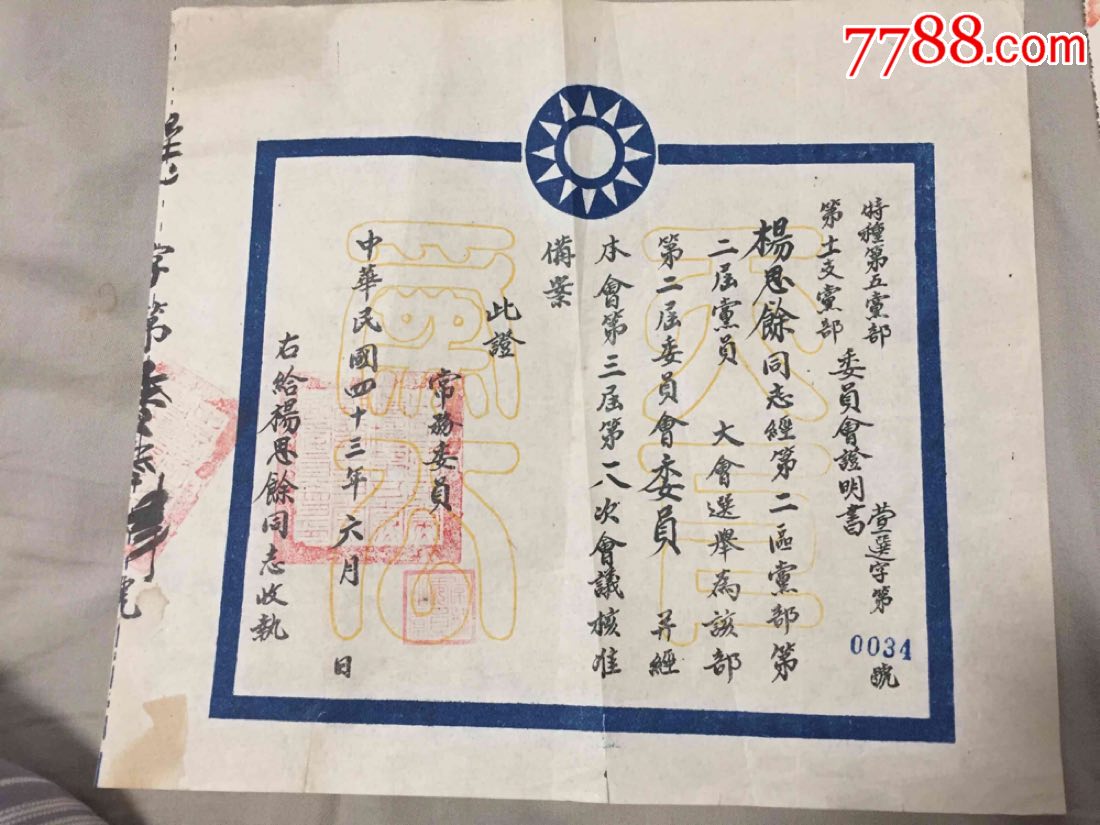 7788.com
特種第五黨部
第十二支黨部
委員會證明書
萱選字第
0034
號
楊思餘同志經第二區黨部第
二屆黨員 大會選舉為該部
第二屆委員會委員 并經
本會第三屆第八次會議核准
備案
此證
常務委員
中華民國四十三年六月 日
右給楊思餘同志收執
天下為公
字第
號